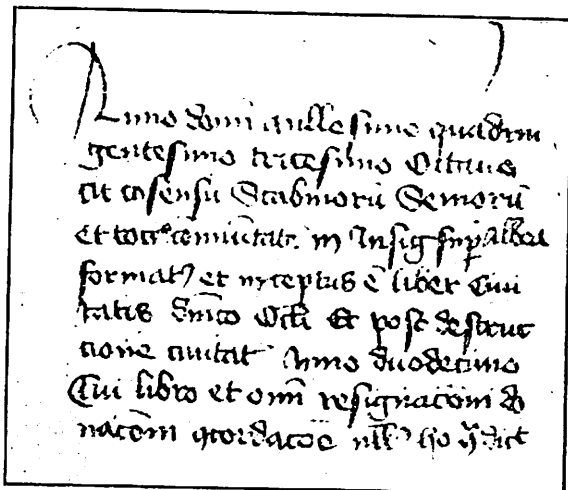 Anno domi millesimo quadrin
gentesimo tricesimo Octauo
cū cōsensu Scabinorū Seniorū
et toci9 cōmūitat in Insig sup Albea
format9 et inceptus ē liber Ciui
tatis Et post destruc
cione ciuitat Anno duodecimo
Cui libro et omī resignaconi do
nacōm qcordacōē null